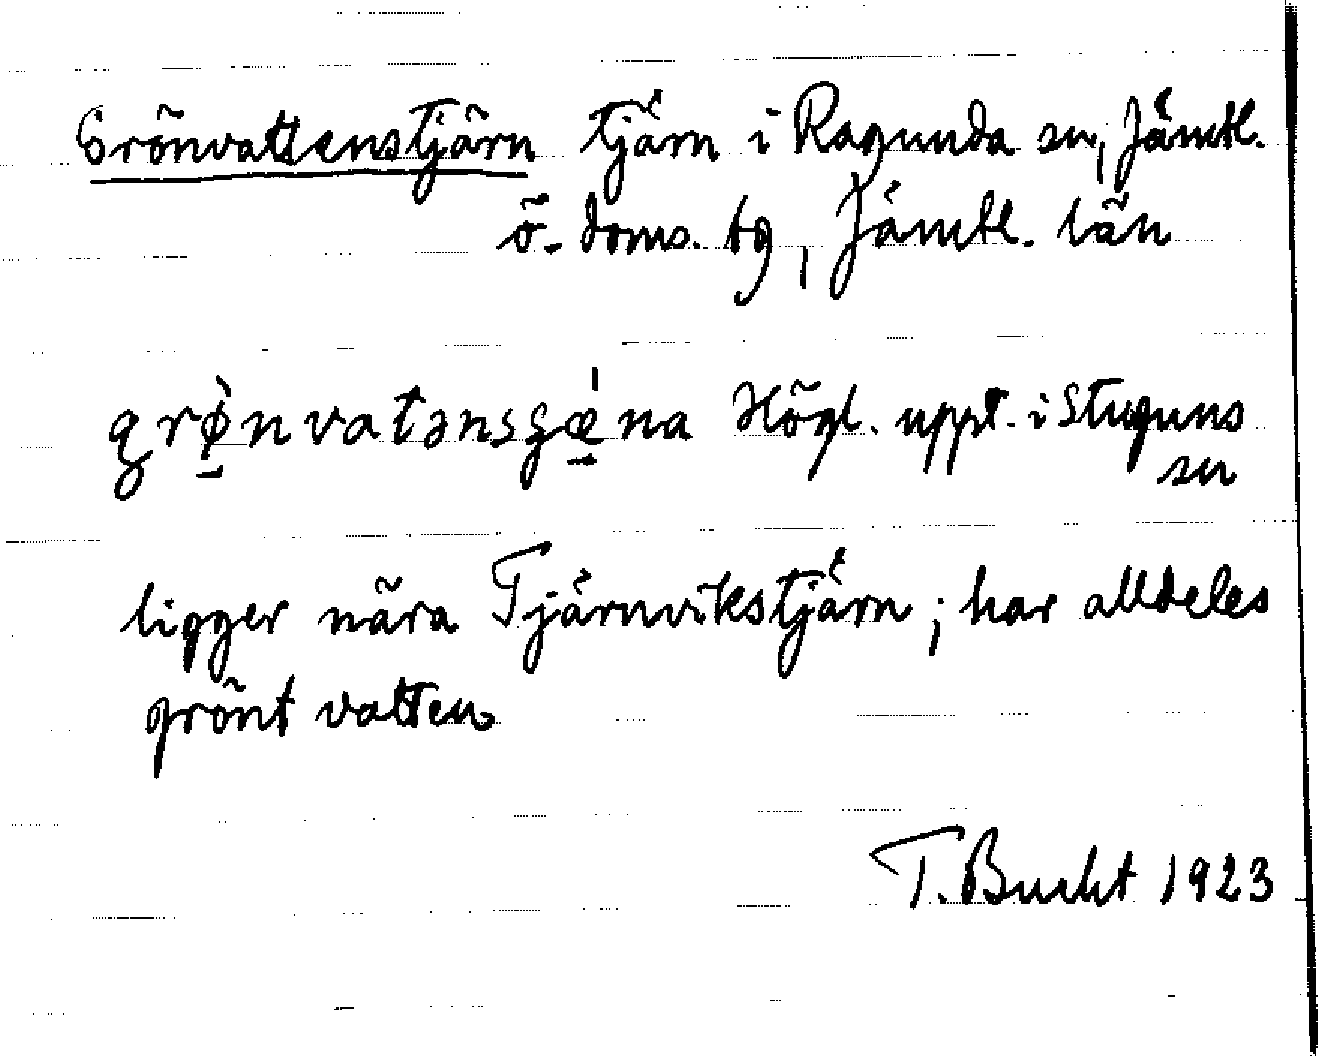 Grönvattenstjärn tjärn i Ragunda sn, Jämtl.
ö. doms. tg, Jämtl. län
grø̀nvatənsʒǽna Högl. uppt. i Stuguns
sn
ligger nära Tjärnvikstjärn; har alldeles
grönt vatten
T. Bucht 1923